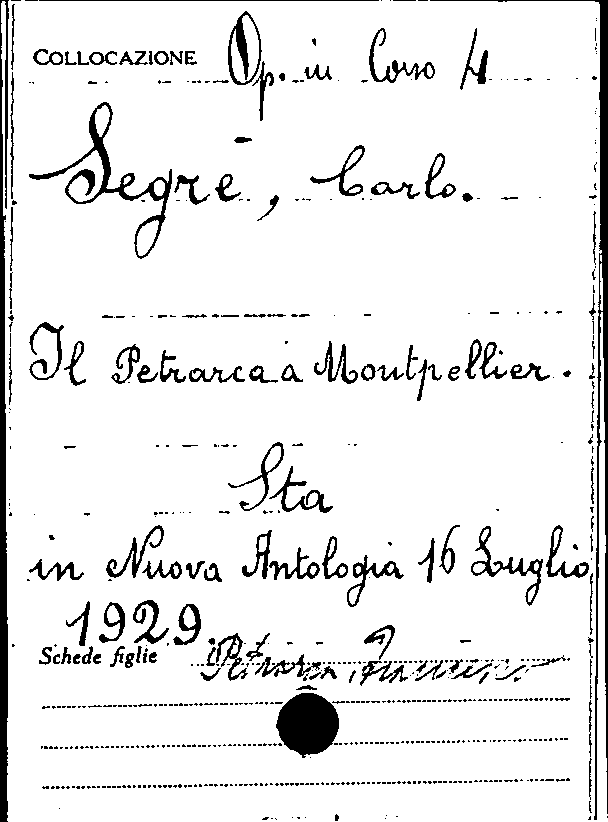 COLLOCAZIONE Op. in Corso 4
Segrè, Carlo.
Il Petrarca a Montpellier.
Sta
in Nuova Antologia 16 Luglio
1929.
Schede figlie Petrarca, Francesco